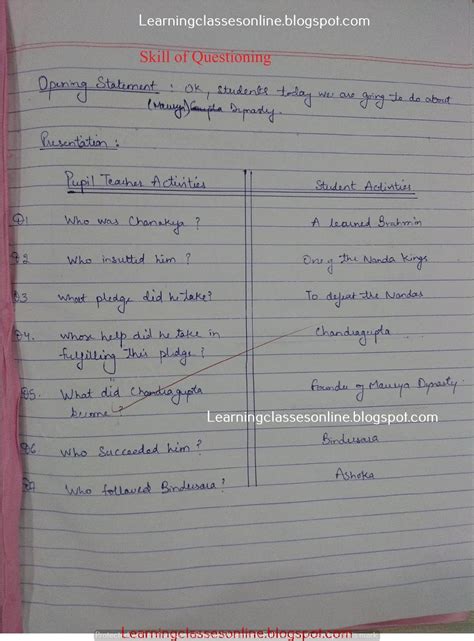 Learningclassesonline.blogspot.com
Skill of Questioning
Opening Statement : Ok, students today we are going to do about
(Maurya) Gupta Dynasty.
Presentation :
Pupil Teacher Activities Student Activities
Q1 Who was Chanakya ? A learned Brahmin
Q2 Who insulted him ? One of the Nanda Kings
Q3 What pledge did he take? To defeat the Nandas
Q4. Whose help did he take in Chandragupta
fulfilling this pledge ?
Q5. What did Chandragupta Founder of Maurya Dynasty
become ?
Learningclassesonline.blogspot.com
Q6 Who succeeded him ? Bindusara
Q7 Who followed Bindusara ? Ashoka
Learningclassesonline.blogspot.com